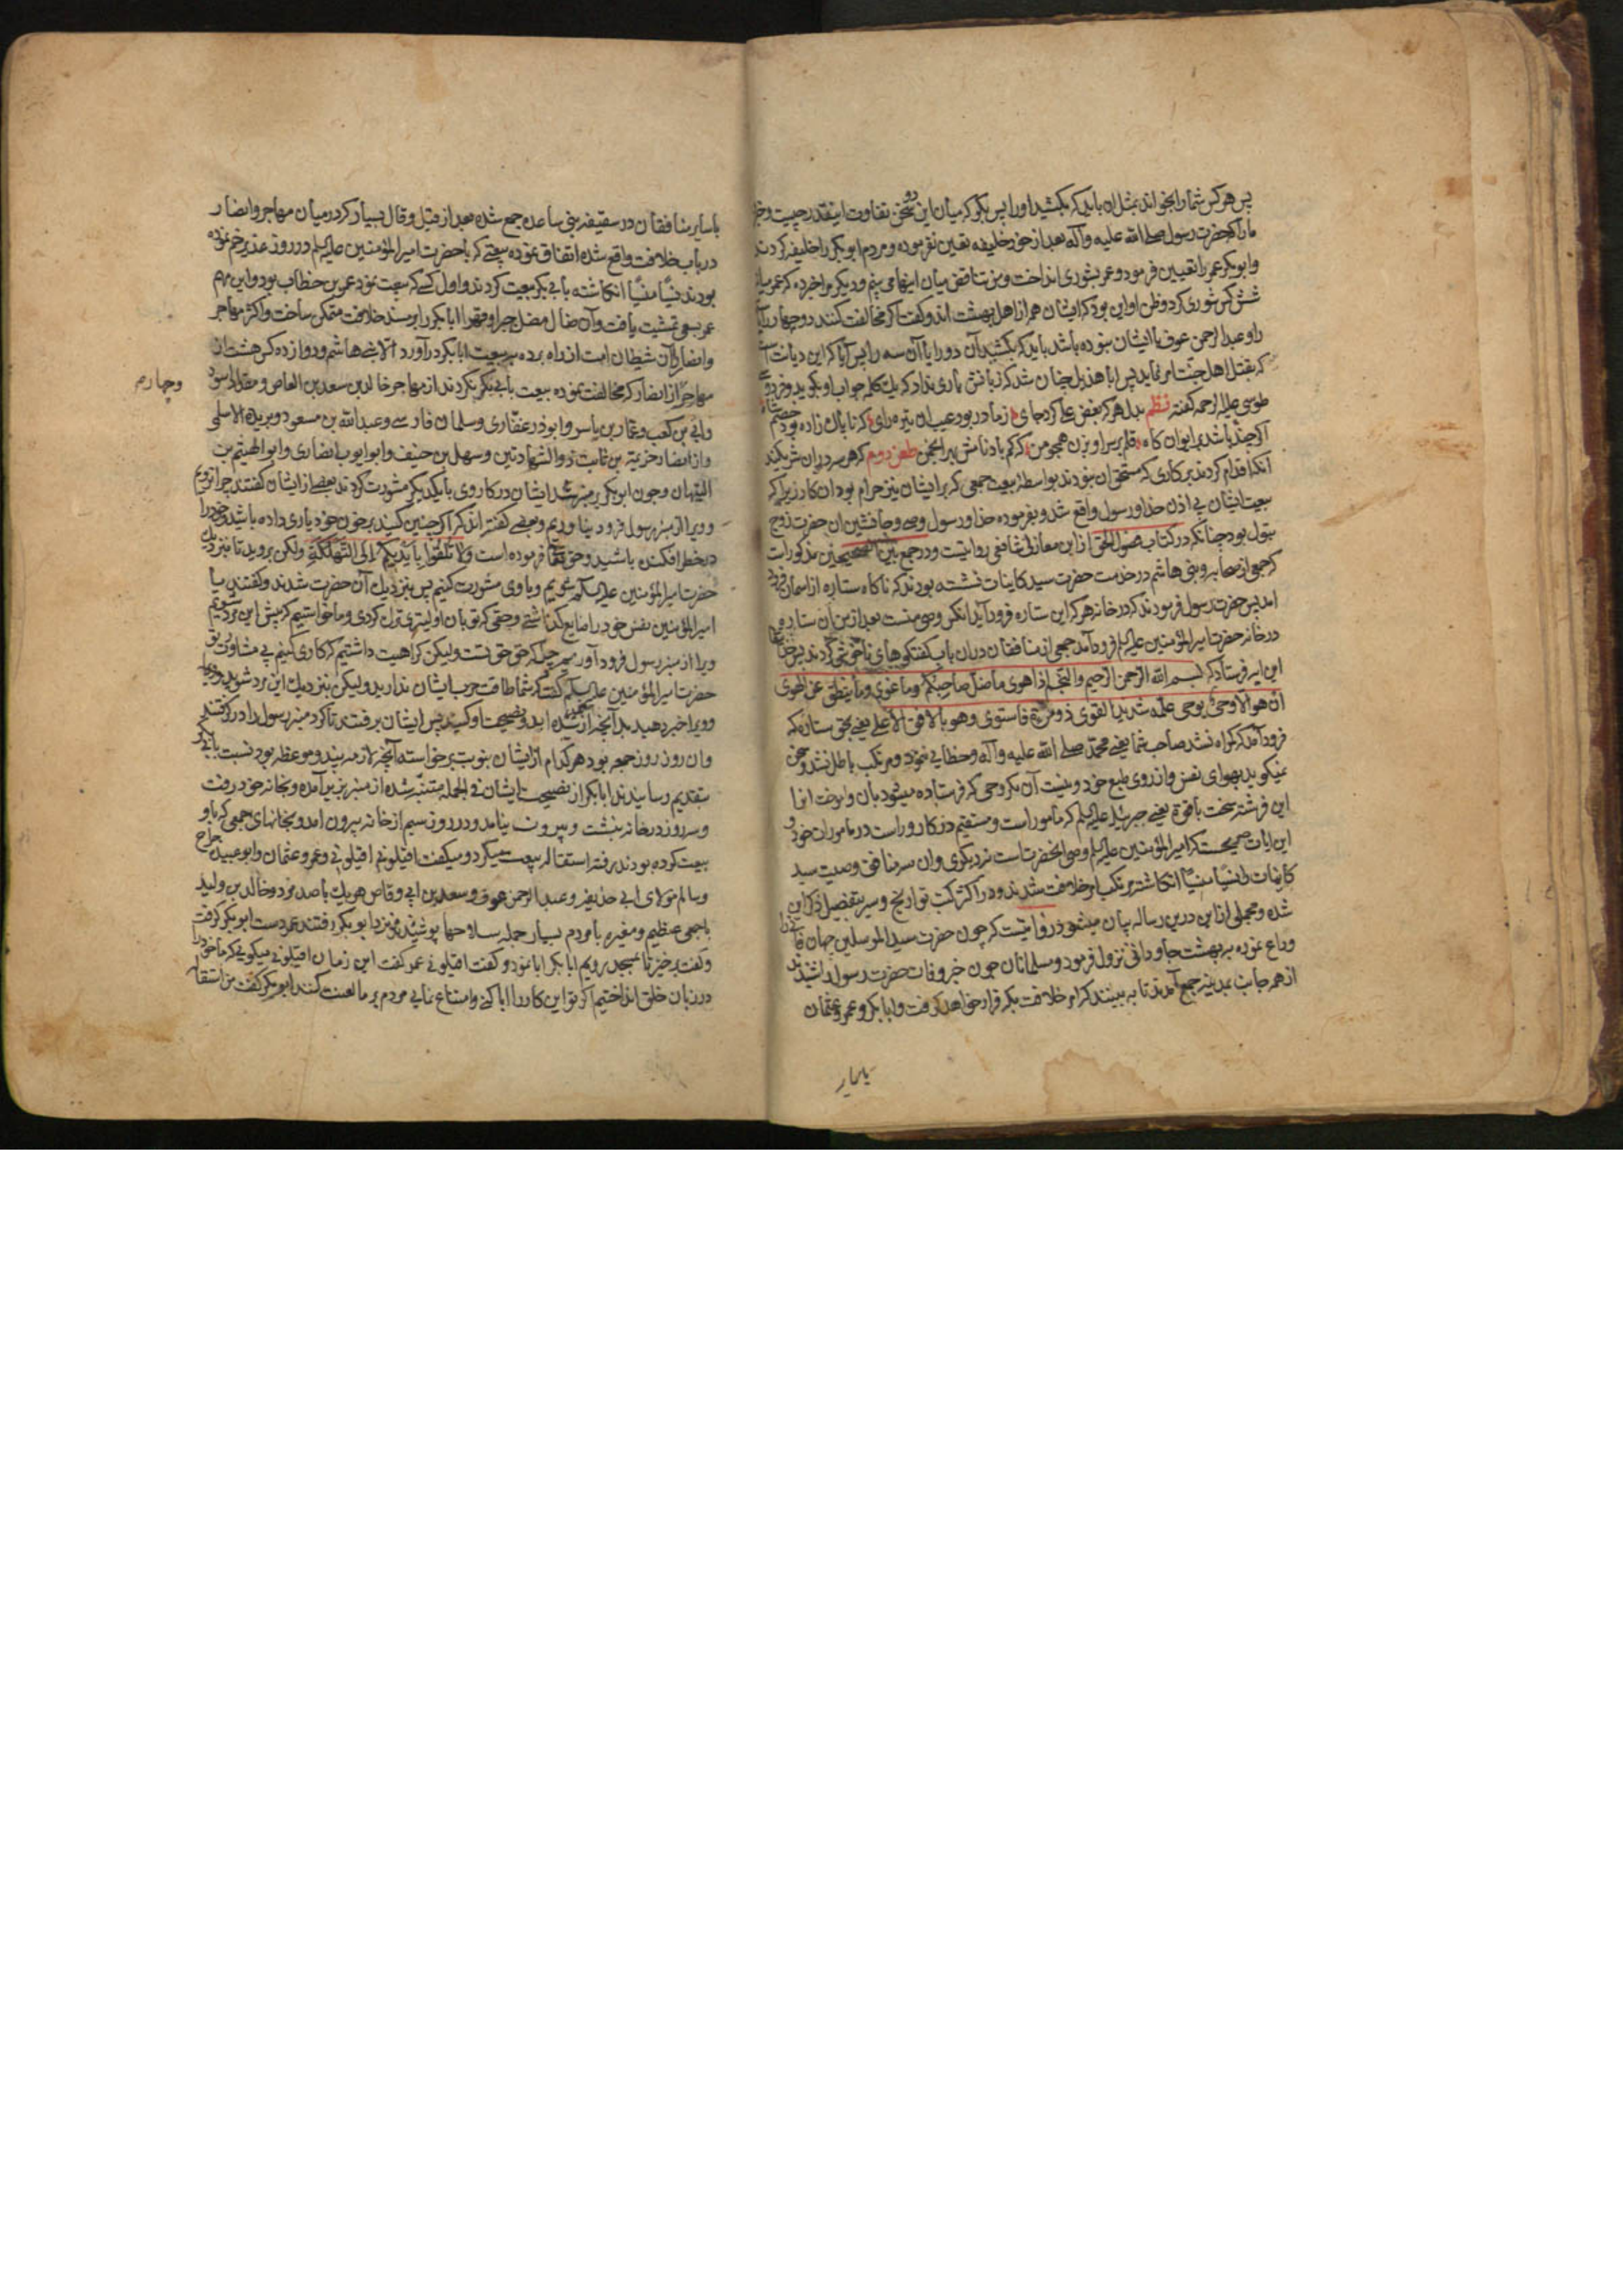 پس هر کس شما را بخواند بمثل ان باید که بکشید او را پس بگو که میان این دو سخن تفاوت اینقدر چیست و خبر
ما را که حضرت رسول صلی الله علیه و آله بعد از خود خلیفه تعین نفرموده و مردم ابو بکر را خلیفه کردند
و ابو بکر عمر را تعیین فرمود و عمر بشوری انداخت و من تناقض میان اینها می بینم و دیگر مرا خبر ده که عمر میان
شش کس شوری کرد و ظن او این بود که ایشان هم از اهل بهشت اند و گفت اگر مخالفت کنند دو چهار را یا
را و عبد الرحمن عوف با ایشان نبوده باشد باید که بکشید آن دو را یا آن سه را پس آیا که این دیانت است
که بقتل اهل جنت امر نماید پس ابا هذیل چنان شد که زبانش یاری نداد که یک کلمه جواب او بگوید و فردوسی
طوسی علیه الرحمه گفته نظم بدل هر که بغض علی کرد جای ز مادر بود عیب ان تیره رای که ناپاک زاده بود خصم شاه
اگر چند باشد بر ایوان کاه قلم بر سر او بزن همچو من که کم باد نامش بهر انجمن طعن دوم که هر سه در ان شریکند
آنکه اقدام کردند بر کاری که مستحق ان نبودند بواسطه بیعت جمعی که بر ایشان نیز حرام بود ان کار زیرا که
بیعت ایشان بی اذن خدا و رسول واقع شد و بفرموده خدا و رسول وصی و جانشین ان حضرت زوج
بتول بود چنانکه در کتاب فصول الحق از ابن مغازلی شافعی روایتست و در جمع بین الصحیحین مذکور است
که جمعی از صحابه و بنی هاشم در خدمت حضرت سید کاینات نشسته بودند که ناکاه ستاره از اسمان فرود
امد پس حضرت رسول فرمودند که در خانه هر که این ستاره فرود آید انکس وصی منست بعد از من ان ستاره
در خانه حضرت امیر المؤمنین علیه السلام فرود آمد جمعی از منافقان در ان باب گفتگوهای ناخوشی کردند پس خدا
این ایه فرستاد که بسم الله الرحمن الرحیم والنجم اذا هوی ما ضل صاحبکم وما غوی وما ینطق عن الهوی
ان هو الا وحی یوحی علمه شدید القوی ذو مرة فاستوی وهو بالافق الاعلی یعنی بحق ستاره که
فرود آمد که کمراه نشد صاحب شما یعنی محمد صلی الله علیه و آله و خطایی ننمود و مرتکب باطل نشد و سخن
نمیکوید بهوای نفس و از روی طبع خود و نیست آن مگر وحی که فرستاده میشود بان و آموخت او را
این فرشته سخت باقوة یعنی جبرئیل علیه السلام که مأمور است و مستقیم در کار و راست در ماموران خود و
این ایات صحیحست که امیر المؤمنین علیه السلام وصی انحضرتست نه دیگری و ان سه منافق وصیت سید
کاینات را نسیا منسیا انکاشته مرتکب امر خلافت شدند و در اکثر کتب تواریخ و سیر بتفصیل ذکر این
شده و مجملی از این درین رساله بیان میشود روایتیست که چون حضرت سید المرسلین جهان فانی را
وداع نموده به بهشت جاودانی نزول فرمود و مسلمانان چون خبر وفات حضرت رسول را شنیدند
از همه جانب بمدینه جمع آمدند تا به بینند که امر خلافت بکه قرار خواهد کرفت و ابا بکر و عمر و عثمان
با سایر
با سایر منافقان در سقیفه بنی ساعده جمع شده بعد از قیل و قال بسیار که در میان مهاجر و انصار
در باب خلافت واقع شده اتفاق نموده بیعتی که با حضرت امیر المؤمنین علیه السلام در روز غدیر خم نموده
بودند نسیا منسیا انکاشته بابی بکر بیعت کردند و اول کسی که بیعت نمود عمر بن خطاب بود و این مهم
عمر بسعی تمشیت یافت و آن ضال مضل جبرا و قهرا ابا بکر را بر مسند خلافت متمکن ساخت و اکثر مهاجر
و انصار را آن شیطان امت از راه برده به بیعت ابا بکر در آورد الا بنی هاشم و دوازده کس هشت از
مهاجر و چهار از انصار که مخالفت نموده بیعت بابی بکر نکردند از مهاجر خالد بن سعد بن العاص و مقداد اسود
و ابی بن کعب و عمار بن یاسر و ابو ذر غفاری و سلمان فارسی و عبد الله بن مسعود و بریده الاسلمی
و از انصار خزیمة بن ثابت ذو الشهادتین و سهل بن حنیف و ابو ایوب انصاری و ابو الهیثم بن
التیهان و چون ابو بکر بر منبر شد ایشان در کار وی با یکدیکر مشورت کردند بعضی از ایشان گفتند چرا نرویم
و ویرا از منبر رسول فرود نیاوریم و بعضی گفته اند که اگر چنین کنید بر خون خود یاری داده باشید و خود را
در خطر افکنده باشید و حق تعالی فرموده است ولا تلقوا بایدیکم الی التهلکة ولکن بروید تا بنزدیک
حضرت امیر المؤمنین علیه السلام شویم و با وی مشورت کنیم پس بنزدیک آن حضرت شدند و گفتند یا
امیر المؤمنین نفس خود را ضایع کذاشتی و حقی که تو بان اولیتری ترک کردی و ما خواستیم که پیش این مرد شویم
ویرا از منبر رسول فرود آوریم چرا که حق حق تست ولیکن کراهیت داشتیم که کاری کنیم بی مشاورت تو
حضرت امیر المؤمنین علیه السلام گفت که شما طاقت حرب ایشان ندارید ولیکن بنزدیک این مرد شوید
و ویرا خبر دهید بدانچه از شنیده اید و نصیحت او کنید پس ایشان برفتند تا کرد منبر رسول را در کرفتند
و ان روز روز جمعه بود هر کدام از ایشان بنوبت برخواسته آنچه لازمه پند و موعظه بود نسبت بابی بکر
بتقدیم رسانیدند ابا بکر از نصیحت ایشان فی الجمله متنبه شده از منبر بزیر آمده و بخانه خود رفت
و سه روز در خانه بنشست و بیرون نیامد و در روز سیم از خانه بیرون امد و بخانهای جمعی که با او
بیعت کرده بودند رفته استقاله بیعت میکرد و میکفت اقیلونی اقیلونی و عمر و عثمان و ابو عبیده جراح
و سالم مولای ابی حذیفه و عبد الرحمن عوف و سعد بن ابی وقاص هر یک با صد مرد و خالد بن ولید
با جمعی عظیم و مغیره با مردم بسیار جمله سلاحها پوشیده بنزد ابو بکر رفتند عمر دست ابو بکر کرفت
و گفت برخیز تا بمسجد رویم ابا بکر ابا نمود و گفت اقیلونی عمر گفت این زمان اقیلونی میکویی که ما خود را
در زبان خلق انداختیم اگر تو این کار را ابا کنی و امتناع نمایی مردم بر ما لعنت کنند ابو بکر گفت من استقا
و چهارم